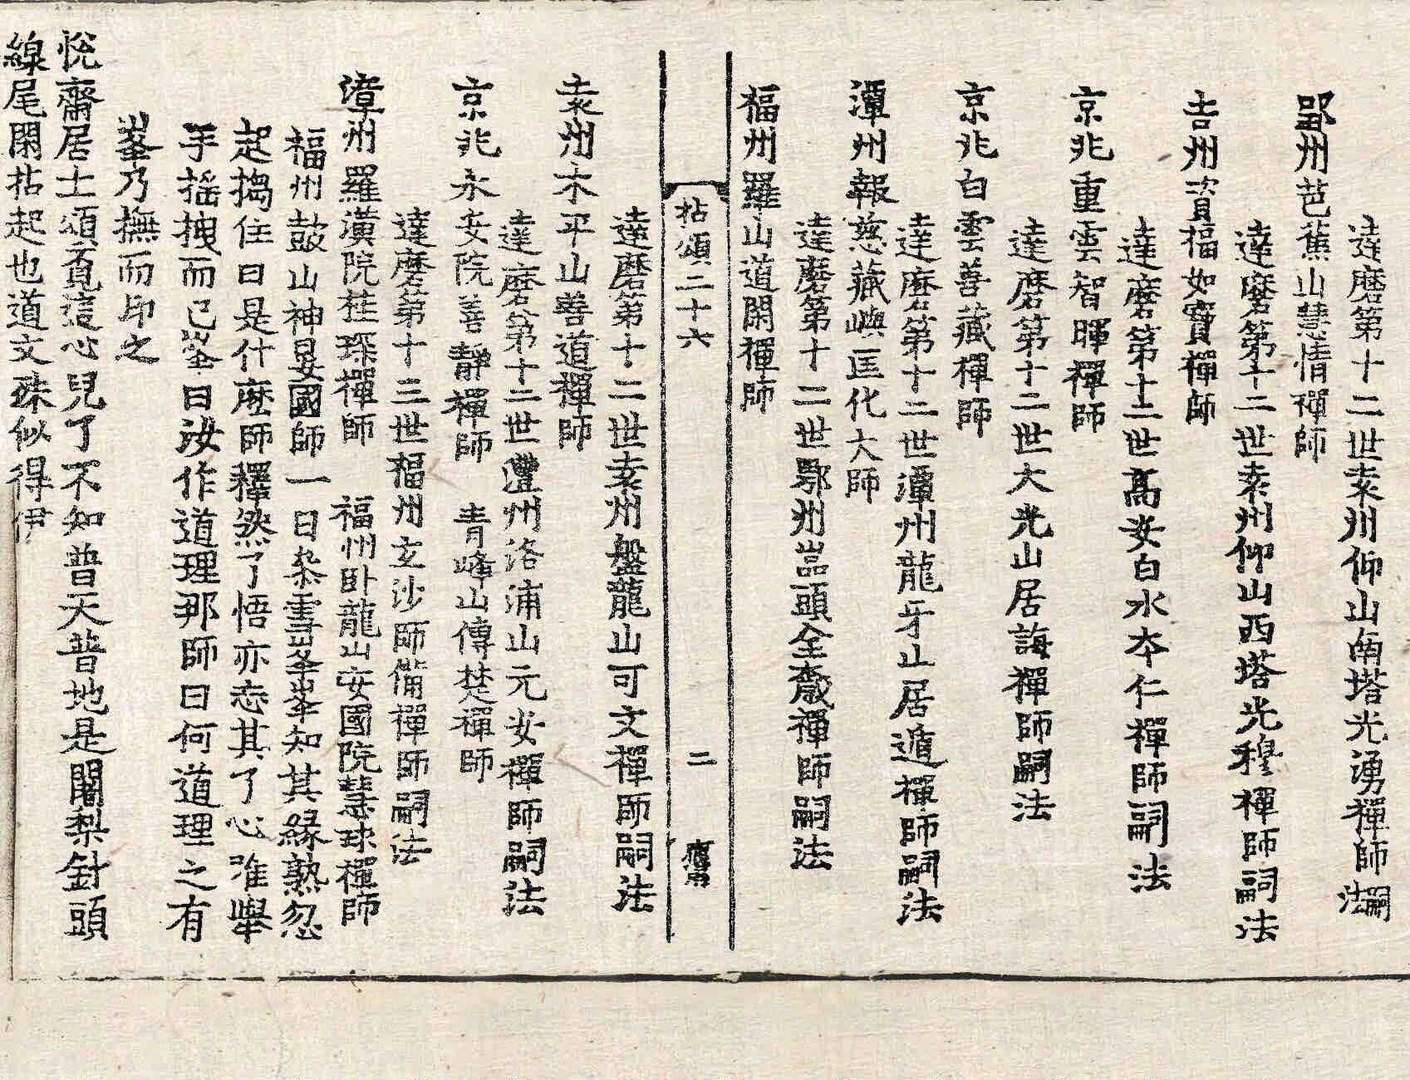 達磨第十二世袁州仰山南塔光湧禪師嗣法
郢州芭蕉山慧情禪師
達磨第十二世袁州仰山西塔光穆禪師嗣法
吉州資福如寶禪師
達磨第十二世高安白水夲仁禪師嗣法
京兆重雲智暉禪師
達磨第十二世大光山居誨禪師嗣法
京兆白雲善藏禪師
達磨第十二世潭州龍牙山居遁禪師嗣法
潭州報慈藏嶼匡化大師
達磨第十二世鄂州嵓頭全奯禪師嗣法
福州羅山道閑禪師
拈頌二十六 二
達磨第十二世袁州盤龍山可文禪師嗣法
袁州木平山善道禪師
達磨第十二世灃州洛浦山元安禪師嗣法
京兆永安院善靜禪師 青峰山傳楚禪師
達磨第十三世福州玄沙師備禪師嗣法
漳州羅漢院桂琛禪師 福州卧龍山安國院慧球禪師
福州鼓山神晏國師一日叅雪峯峯知其緣熟忽
起搊住曰是什麽師釋然了悟亦忘其了心唯舉
手搖拽而已峯曰汝作道理那師曰何道理之有
峯乃撫而印之
悅齋居士頌覔這心兒了不知普天普地是闍梨針頭
線尾閑拈起也道文殊似得伊